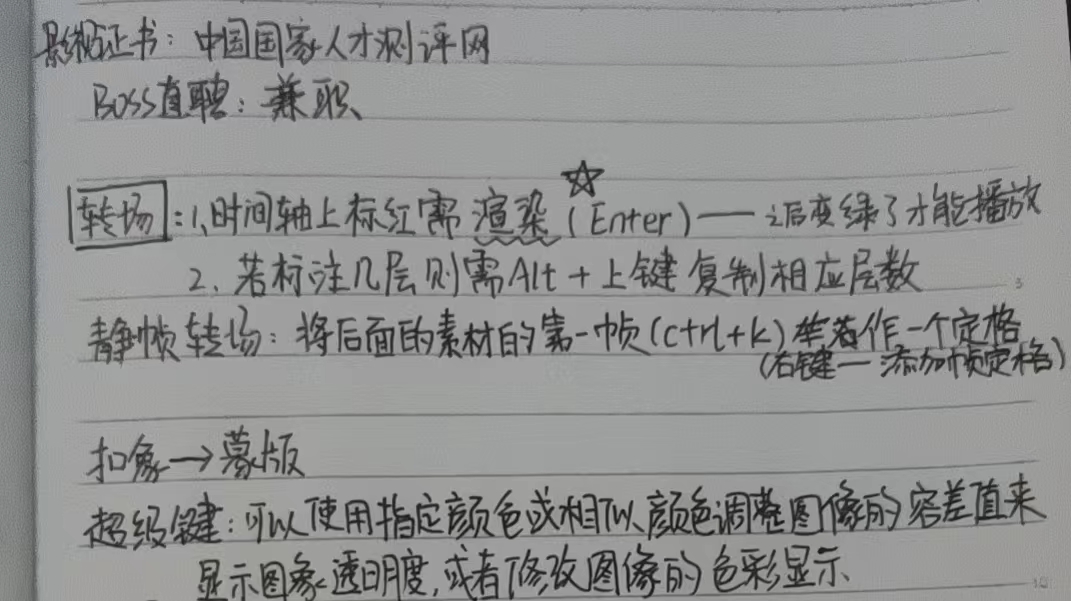 影视证书：中国国家人才测评网
Boss直聘：兼职、
☆
转场：1、时间轴上标红需渲染（Enter）——之后变绿了才能播放
2、若标注几层则需Alt+上键复制相应层数
静帧转场：将后面的素材的第一帧(ctrl+k)单着作一个定格
（右键一添加帧定格）
扣象→蒙版
超级键：可以使用指定颜色或相似颜色调整图像的容差值来
显示图象透明度，或者修改图像的色彩显示、